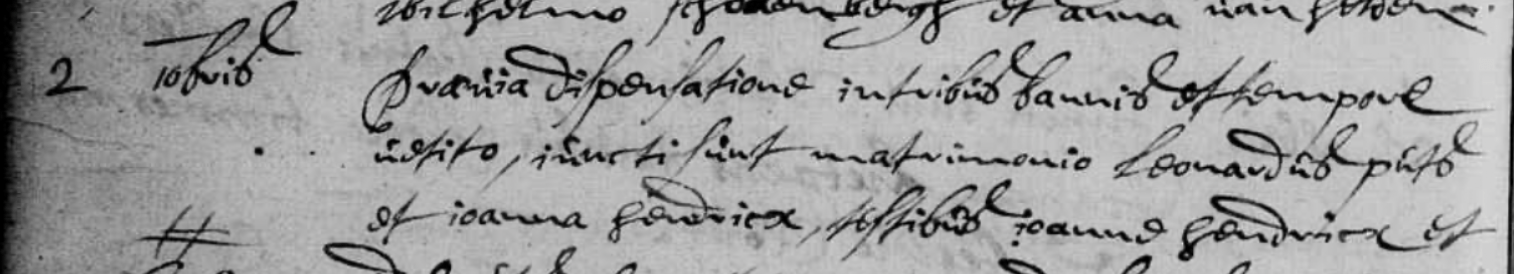 Wilhelmo et anna van
2 10bris Praevia dispensatione in tribus bannis et tempore
vetito, iuncti sunt matrimonio Leonardus puts
et ioanna hendricx, testibus ioanne hendricx et